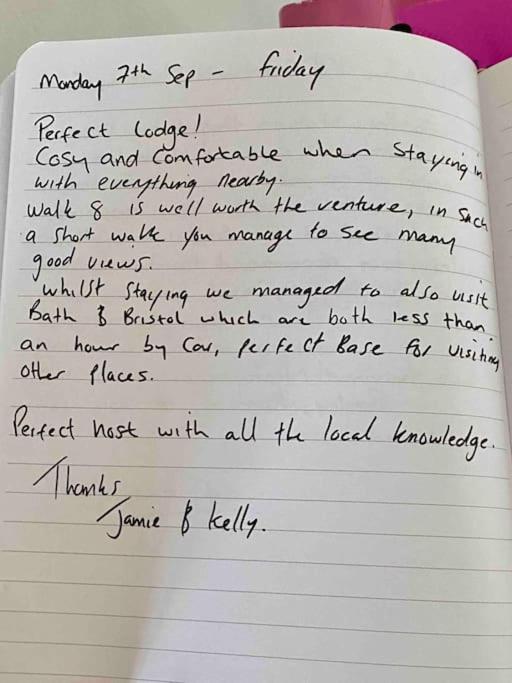 Monday 7th Sep - friday
Perfect Lodge!
Cosy and Comfortable when Staying in
with everything nearby.
Walk 8 is well worth the venture, in Such
a Short walk you manage to See many
good views.
Whilst Staying we managed to also visit
Bath & Bristol which are both less than
an hour by Car, perfect Base for visiting
other Places.
Perfect host with all the local knowledge.
Thanks
Jamie & Kelly.